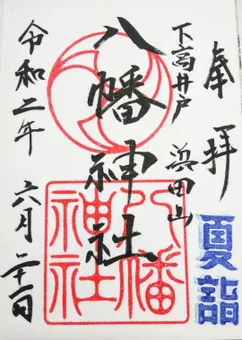 奉拝
下高井戸
浜田山
八幡神社
令和二年
六月二十一日
八幡
神社
夏詣